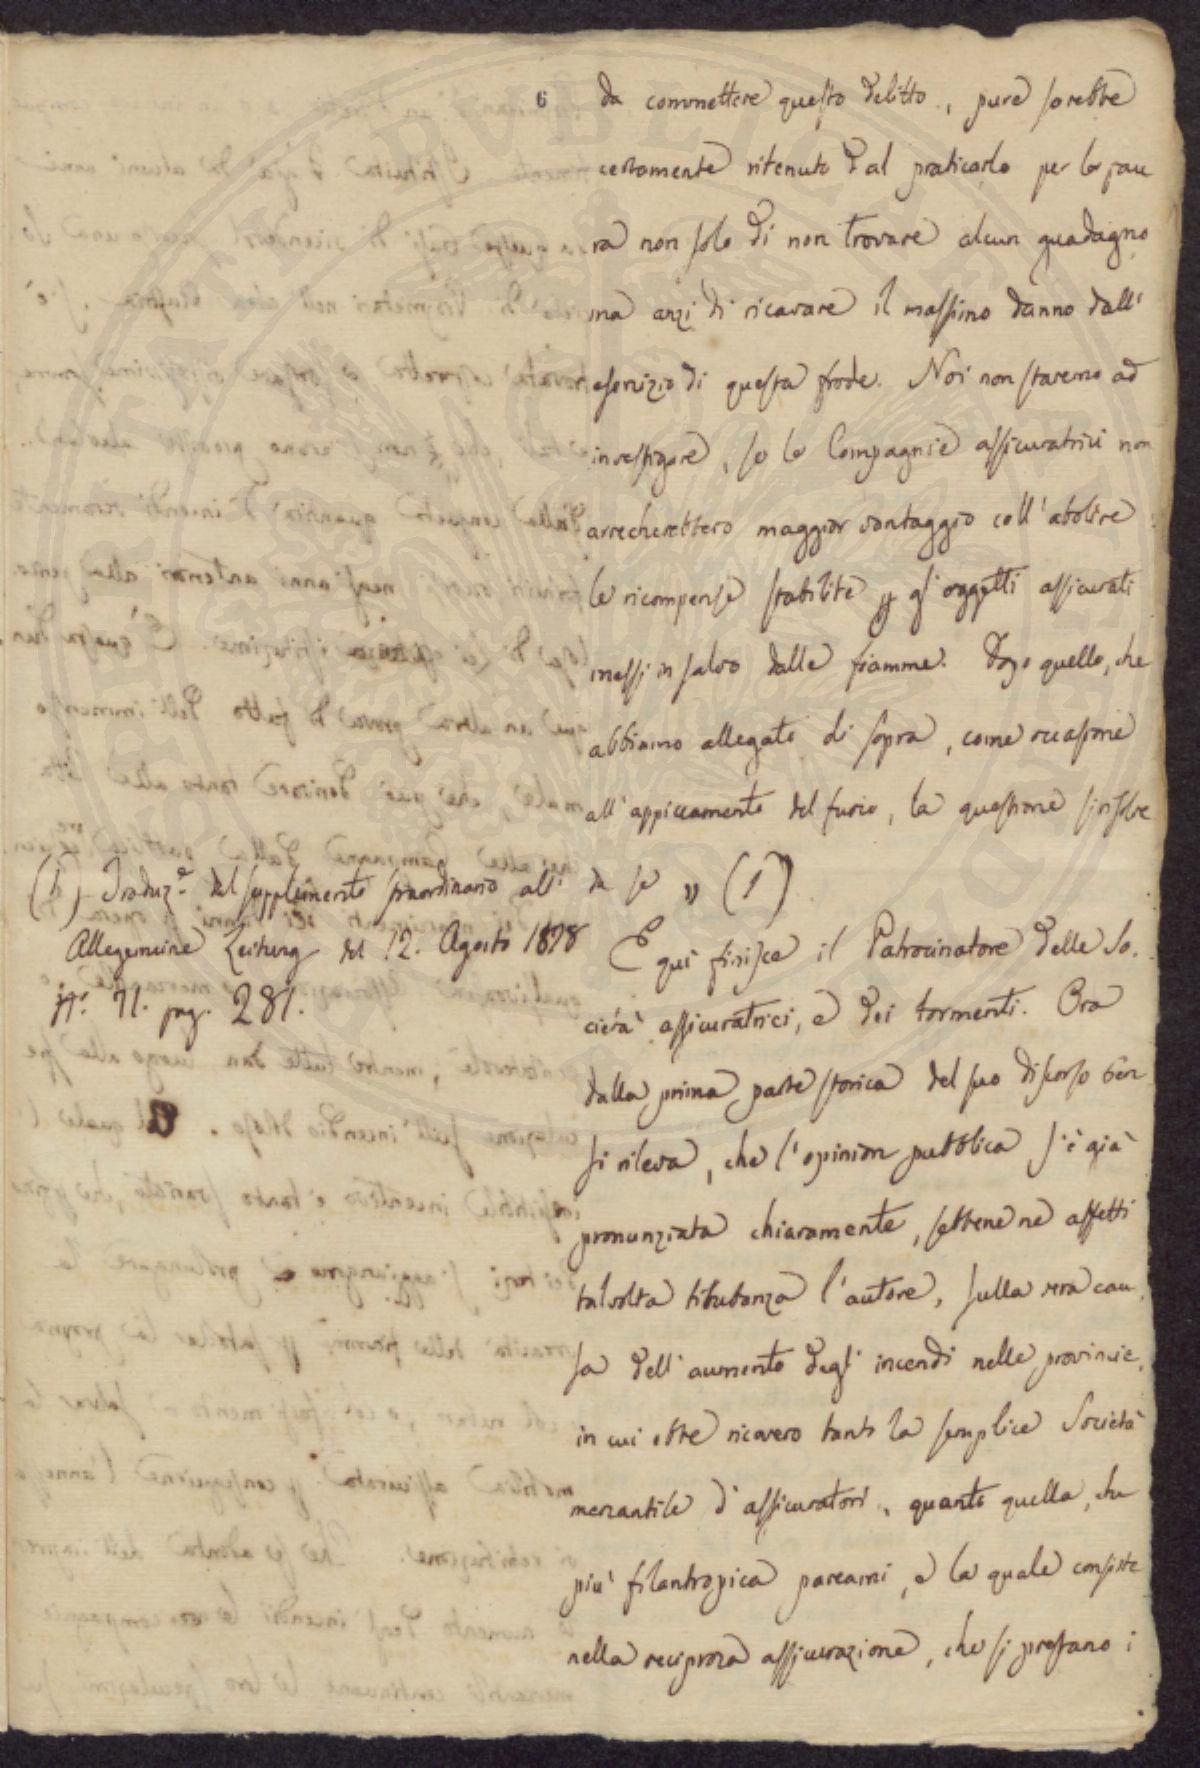 6
da commettere questo delitto, pure sarebbe
certamente ritenuto dal praticarlo per la pau
ra non solo di non trovare alcun guadagno
ma anzi di ricavare il massimo danno dall'
esercizio di questa frode. Noi non staremo ad
investigare, se le Compagnie assicuratrici non
arrecherebbero maggior vantaggio coll'abolire
le ricompense stabilite p gl'oggetti assicurati
messi in salvo dalle fiamme. Dopo quello, che
abbiamo allegato di sopra, come occasione
all'appiccamento del fuoco, la questione si risolve
da se „ (1)
E quì finisce il Patrocinatore delle So.
cietà assicuratrici, e dei tormenti. Ora
dalla prima parte storica del suo discorso ben
si rileva, che l'opinion pubblica s'è già
pronunziata chiaramente, sebbene ne affetti
talvolta titubanza l'autore, sulla vera cau
sa dell'aumento degl'incendi nelle provincie,
in cui ebbe ricovero tanto la semplice Società
mercantile d'assicuratori, quanto quella, che
più filantropica parcami, e la quale consiste
nella reciproca assicurazione, che si prestano i
(1) Traduz.e del supplimento straordinario all'
Allegemeine Zeitung del 12. Agosto 1828
N.o 71. pag. 281.